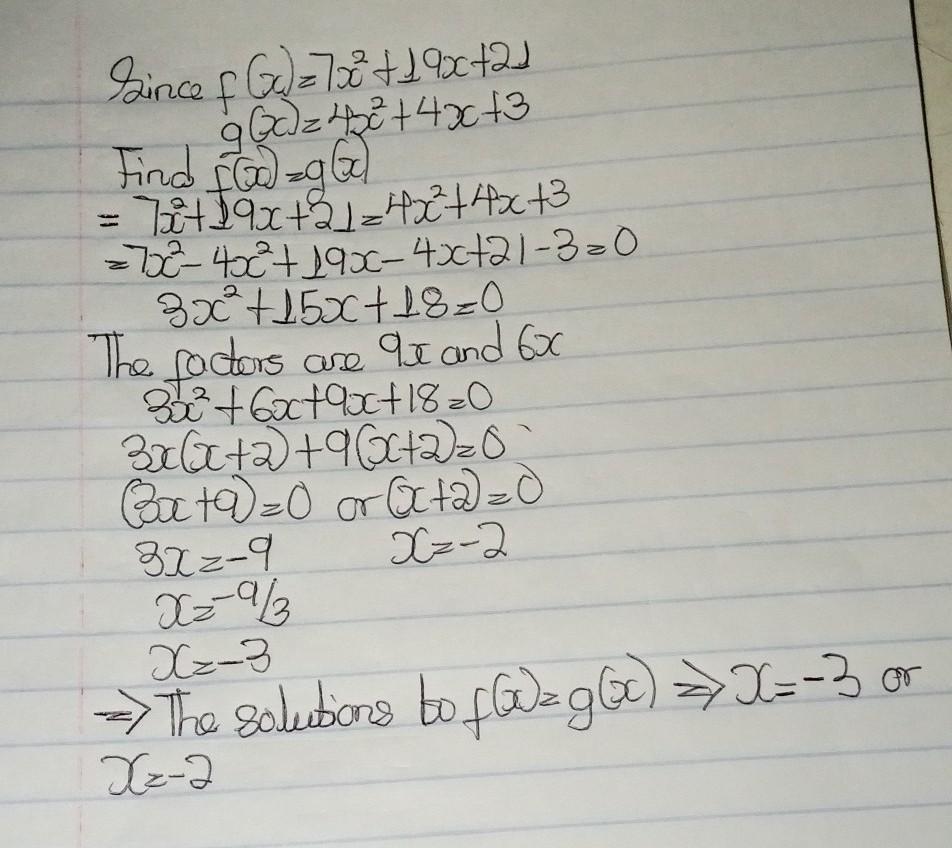 Since f(x)=7x²+19x+21
g(x)=4x²+4x+3
Find f(x)=g(x)
= 7x²+19x+21=4x²+4x+3
=7x²-4x²+19x-4x+21-3=0
3x²+15x+18=0
The factors are 9x and 6x
3x²+6x+9x+18=0
3x(x+2)+9(x+2)=0
(3x+9)=0 or (x+2)=0
3x=-9 x=-2
x=-9/3
x=-3
⇒ The solutions to f(x)=g(x) ⇒ x=-3 or
x=-2